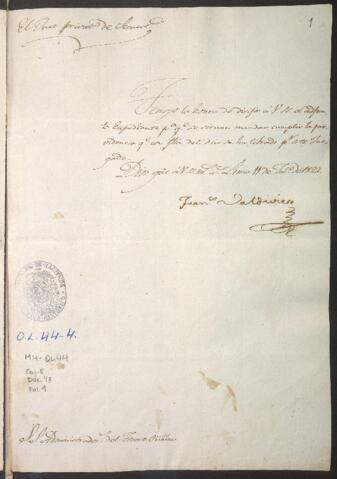 1
Tengo la honra de dirigir a V.S. el adjun-
to Expediente pa. qe. se sirva mandar cumplir la pro-
videncia qe. con fha. del dia se ha librado pr. este Juz-
gado.
Dios gue. a V.S. ms. as. Lima 11 de de 1822.
Franco. Valdivieso
O.L. 44-4.
MH-OL44
Caj. 5
Doc. 43
Fol 1
S.S. Administrador. del Tesoro Publico